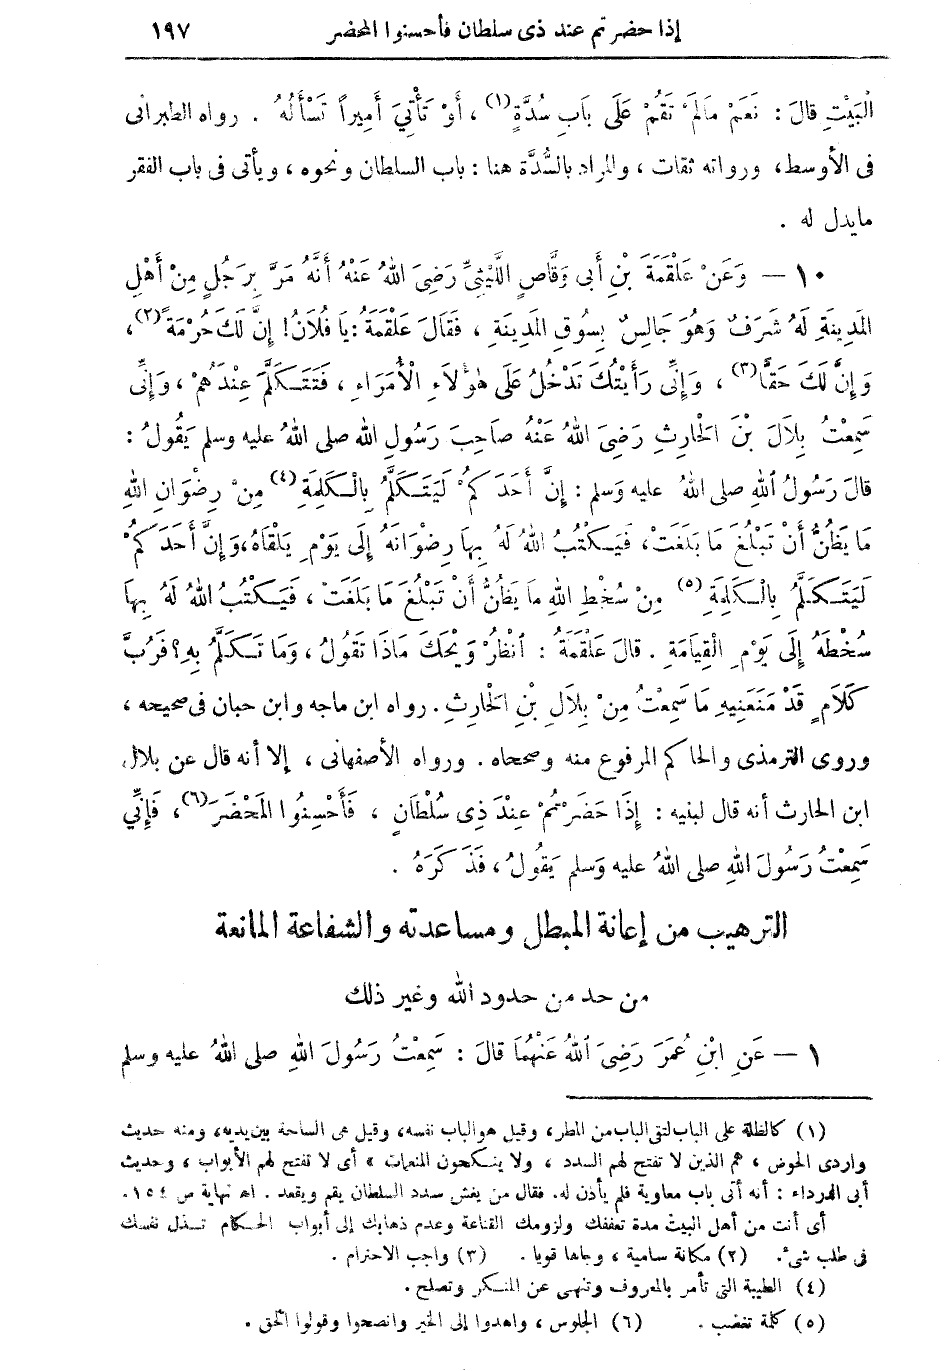 إذا حضرتم عند ذى سلطان فأحسنوا المحضر ١٩٧
الْبَيْتِ قالَ : نَعَمْ مَالَمْ تَقُمْ عَلَى بَابِ سُدَّةٍ (١) ، أَوْ تَأْتِيَ أَمِيراً تَسْأَلُهُ . رواه الطبرانى
فى الأوسط، ورواته ثقات ، والمراد بالسُّدَّة هنا : باب السلطان ونحوه ، ويأتى فى باب الفقر
مايدل له .
١٠ — وَعَنْ عَلْقَمَةَ بْنِ أَبى وَقَّاصٍ اللَّيْثِيِّ رَضِىَ اللهُ عَنْهُ أَنَّهُ مَرَّ بِرَجُلٍ مِنْ أَهْلِ
المَدِينَةِ لَهُ شَرَفٌ وَهُوَ جَالِسٌ بِسُوقِ المَدِينَةِ ، فَقَالَ عَلْقَمَةُ : يَا فُلاَنُ! إِنَّ لَكَ حُرْمَةً (٢) ،
وَإِنَّ لَكَ حَقًّا (٣) ، وَإِنِّى رَأَيْتُكَ تَدْخُلُ عَلَى هٰؤُلاَءِ الْأُمَرَاءِ ، فَتَتَكَلَّمُ عِنْدَهُمْ ، وَإِنِّى
سَمِعْتُ بِلاَلَ بْنَ الحَارِثِ رَضِىَ اللهُ عَنْهُ صَاحِبَ رَسُولِ اللهِ صلى اللهُ عليه وسلم يَقُولُ :
قالَ رَسُولُ اللهِ صلى اللهُ عليه وَسلم : إِنَّ أَحَدَكُمْ لَيَتَكَلَّمُ بِالْكَلِمَةِ (٤) مِنْ رِضْوَانِ اللهِ
مَا يَظُنُّ أَنْ تَبْلُغَ مَا بَلَغَتْ، فَيَكْتُبُ اللهُ لَهُ بِهَا رِضْوَانَهُ إِلَى يَوْمِ يَلْقَاهُ، وَإِنَّ أَحَدَكُمْ
لَيَتَكَلَّمُ بِالْكَلِمَةِ (٥) مِنْ سُخْطِ اللهِ مَا يَظُنُّ أَنْ تَبْلُغَ مَا بَلَغَتْ ، فَيَكْتُبُ اللهُ لَهُ بِهَا
سُخْطَهُ إِلَى يَوْمِ الْقِيَامَةِ . قالَ عَلْقَمَةُ : اُنْظُرْ وَيْحَكَ مَاذَا تَقُولُ ، وَمَا تَكَلَّمُ بِهِ؟ فَرُبَّ
كَلاَمٍ قَدْ مَنَعَنِيهِ مَا سَمِعْتُ مِنْ بِلاَلِ بْنِ الحَارِثِ . رواه ابن ماجه وابن حبان فى صحيحه ،
وروى الترمذى والحاكم المرفوع منه وصححاه . ورواه الأصفهانى ، إلا أنه قال عن بلال
ابن الحارث أنه قال لبنيه : إِذَا حَضَرْتُمْ عِنْدَ ذِى سُلْطَانٍ ، فَأَحْسِنُوا المَحْضَرَ (٦) ، فَإِنِّي
سَمِعْتُ رَسُولَ اللهِ صلى اللهُ عليه وَسلم يَقُولُ ، فَذَكَرَهُ .
الترهيب من إعانة المبطل ومساعدته والشفاعة المانعة
من حد من حدود الله وغير ذلك
١ — عَنِ ابْنِ عُمَرَ رَضِىَ اللهُ عَنْهُمَا قالَ : سَمِعْتُ رَسُولَ اللهِ صلى اللهُ عليه وسلم
(١) كالظلة على الباب لتقى الباب من المطر، وقيل هو الباب نفسه، وقيل هى الساحة بين يديه، ومنه حديث
واردى الحوض ، هم الذين لا تفتح لهم السدد ، ولا ينكحون المنعمات » أى لا تفتح لهم الأبواب ، وحديث
أبى الدرداء : أنه أتى باب معاوية فلم يأذن له. فقال من يغش سدد السلطان يقم ويقعد . اهـ نهاية ص ١٥٤.
أى أنت من أهل البيت مدة تعففك ولزومك القناعة وعدم ذهابك إلى أبواب الحكام تسذل نفسك
فى طلب شىء. (٢) مكانة سامية ، وجاها قويا . (٣) واجب الاحترام .
(٤) الطيبة التى تأمر بالمعروف وتنهى عن المنكر وتصلح .
(٥) كلمة تغضب . (٦) الجلوس ، واهدوا إلى الخير وانصحوا وقولوا الحق .